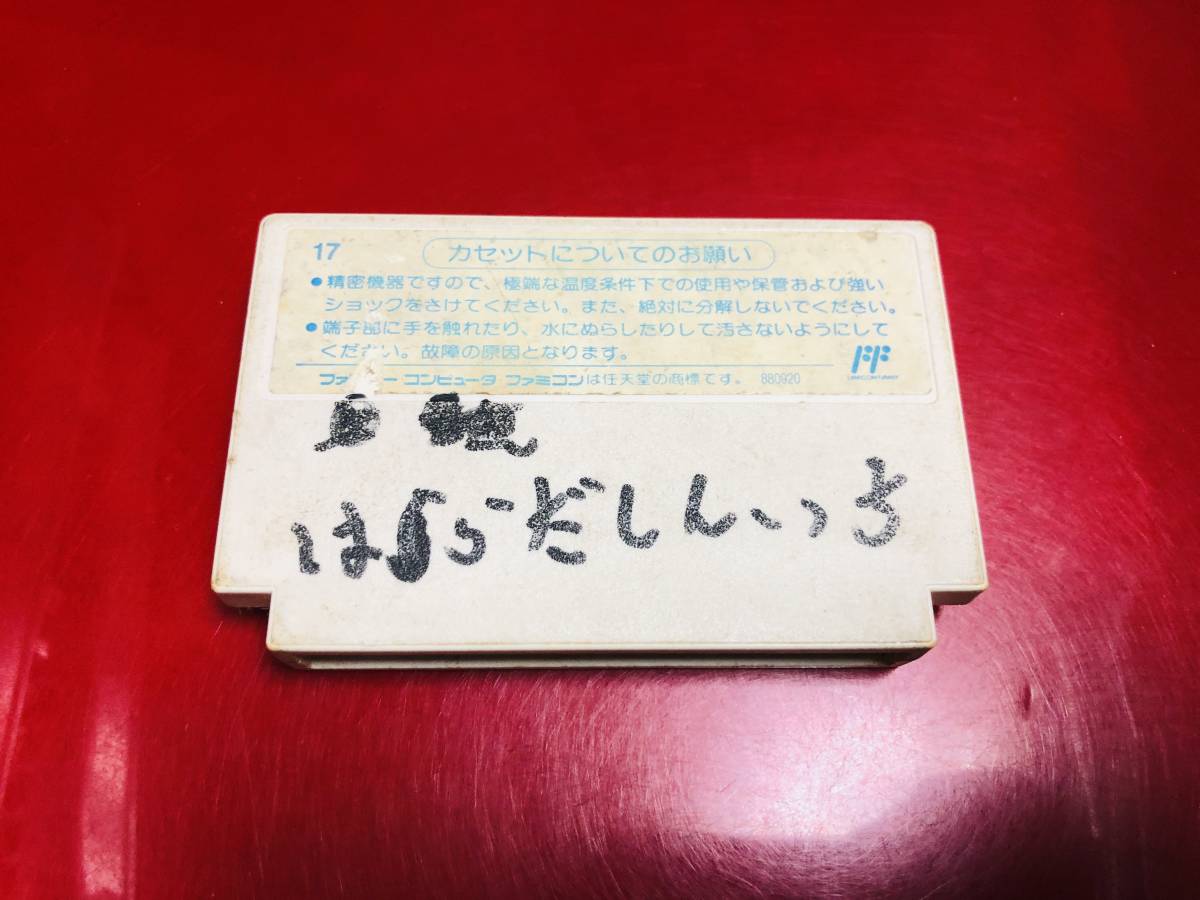 17
カセットについてのお願い
●精密機器ですので、極端な温度条件下での使用や保管および強い
ショックをさけてください。また、絶対に分解しないでください。
●端子部に手を触れたり、水にぬらしたりして汚さないようにして
ください。故障の原因となります。
FF
ファミリー コンピュータ ファミコンは任天堂の商標です。 880920
はらだしんいち